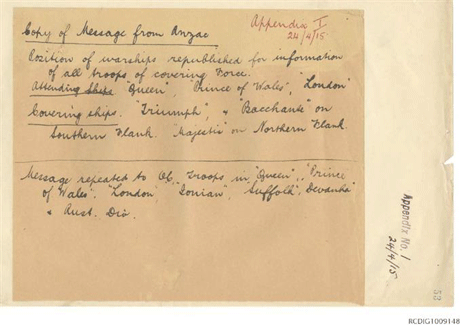 Appendix I
24/4/15
Copy of Message from Anzac
Position of warships republished for information
of all troops of covering Force.
Attending Ships "Queen", "Prince of Wales", "London"
Covering ships. "Triumph", & "Bacchante" on
Southern Flank. "Majestic" on Northern Flank.
Message repeated to OC, Troops in "Queen", "Prince
of Wales". "London", "Ionian", "Suffolk", "Devanha"
& Aust. Div.
Appendix No. 1
24/4/15
53
RCDIG1009148